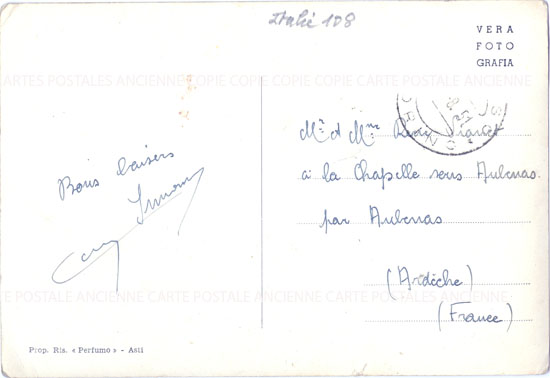 Italie 108
VERA
FOTO
GRAFIA
CARTES POSTALES ANCIENNE COPIE COPIE COPIE CARTE POSTALE ANCIENNE
Bons baisers
Mr et Mme
à la Chapelle sous Aubenas.
par Aubenas
(Ardèche)
(France)
E POSTALE ANCIENNE CARTE POSTALE ANCIENNE CARTE POSTALE ANCIENNE CARTE
Prop. Ris. « Perfumo » - Asti